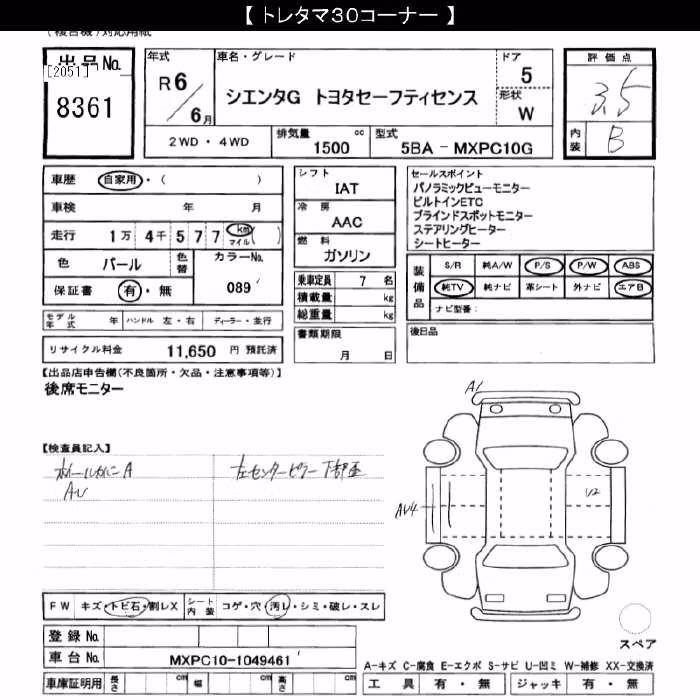 【 トレタマ30コーナー 】
(複合機)対応用紙
出品No.
[2051]
8361
年式
R6/6月
車名・グレード
シエンタG トヨタセーフティセンス
ドア
5
形状
W
評価点
3.5
内装
B
2WD・4WD
排気量 1500 cc
型式 5BA - MXPC10G
車歴 自家用・( )
車検 年 月
走行 1万 4千 5 7 7 km マイル ( )
色 パール 色替 カラーNo.
保証書 有・無 089
モデル年式 年 ハンドル 左・右 ディーラー・並行
リサイクル料金 11,650 円 預託済
シフト
IAT
冷房
AAC
燃料
ガソリン
乗車定員 7 名
積載量 kg
総重量 kg
書類期限
月 日
セールスポイント
パノラミックビューモニター
ビルトインETC
ブラインドスポットモニター
ステアリングヒーター
シートヒーター
装備品
S/R 純A/W P/S P/W ABS
純TV 純ナビ 革シート 外ナビ エアB
ナビ型番:
後日品
【出品店申告欄(不良箇所・欠品・注意事項等)】
後席モニター
【検査員記入】
A
左センターピラー下部歪
AU
A1
AU4
U2
FW キズ・トビ石・割レX シート内装 コゲ・穴・汚レ・シミ・破レ・スレ
登録No.
車台No. MXPC10-1049461
車庫証明用 長さ cm 幅 cm 高さ cm
スペア
A-キズ C-腐食 E-エクボ S-サビ U-凹ミ W-補修 XX-交換済
工具 有・無 ジャッキ 有・無